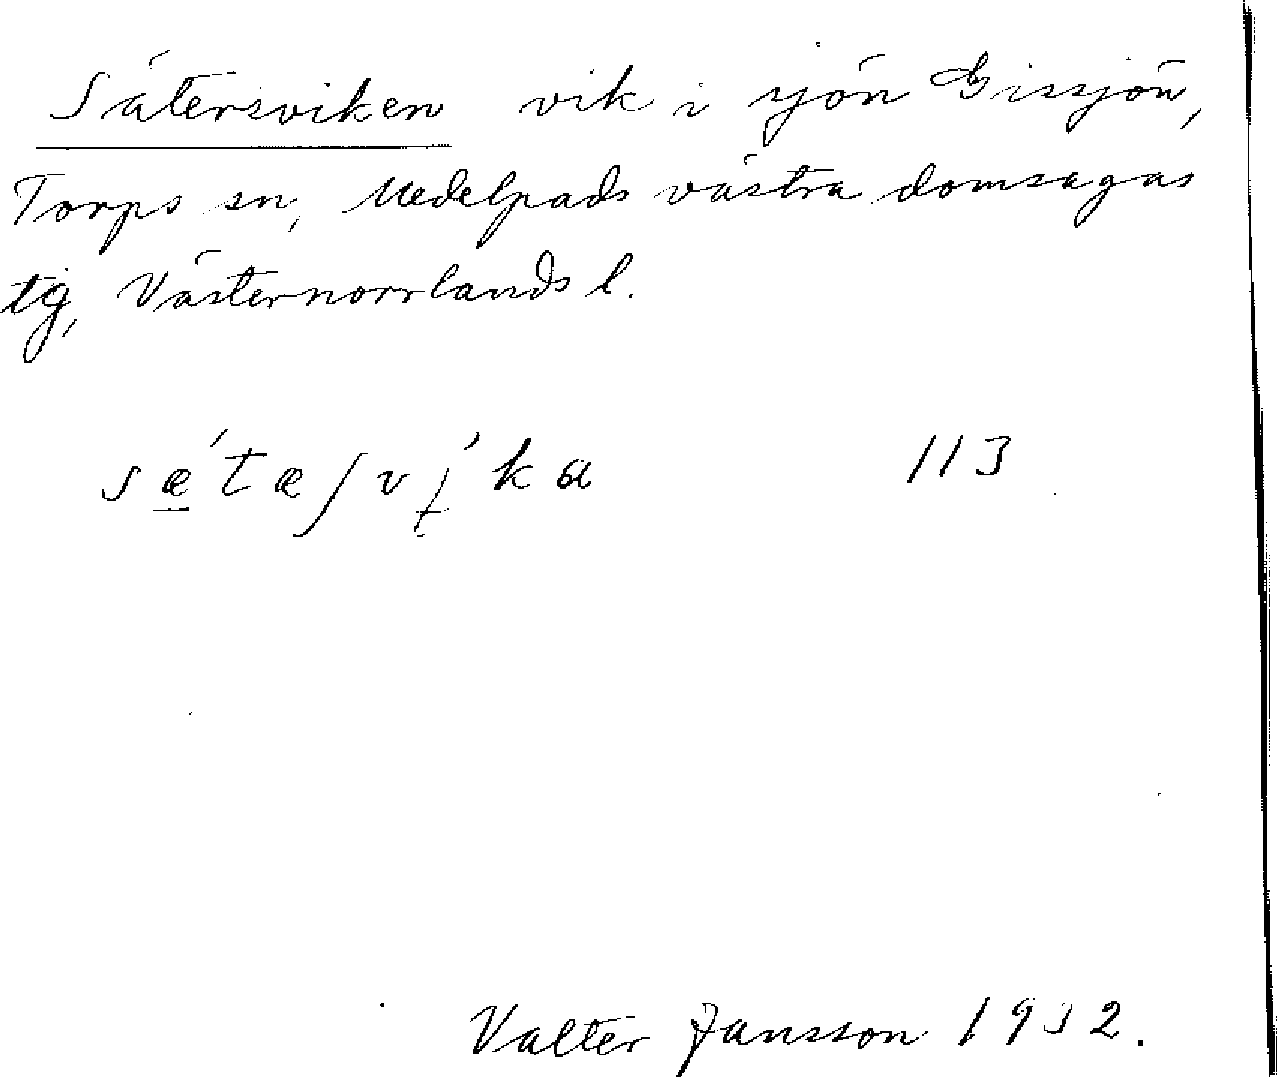 Sätersviken vik i sjön Gissjön,
Torps sn, Medelpads västra domsagas
tg, Västernorrlands l.
sǽ̲tæʃvɨ́ka 113
Valter Jansson 1932.